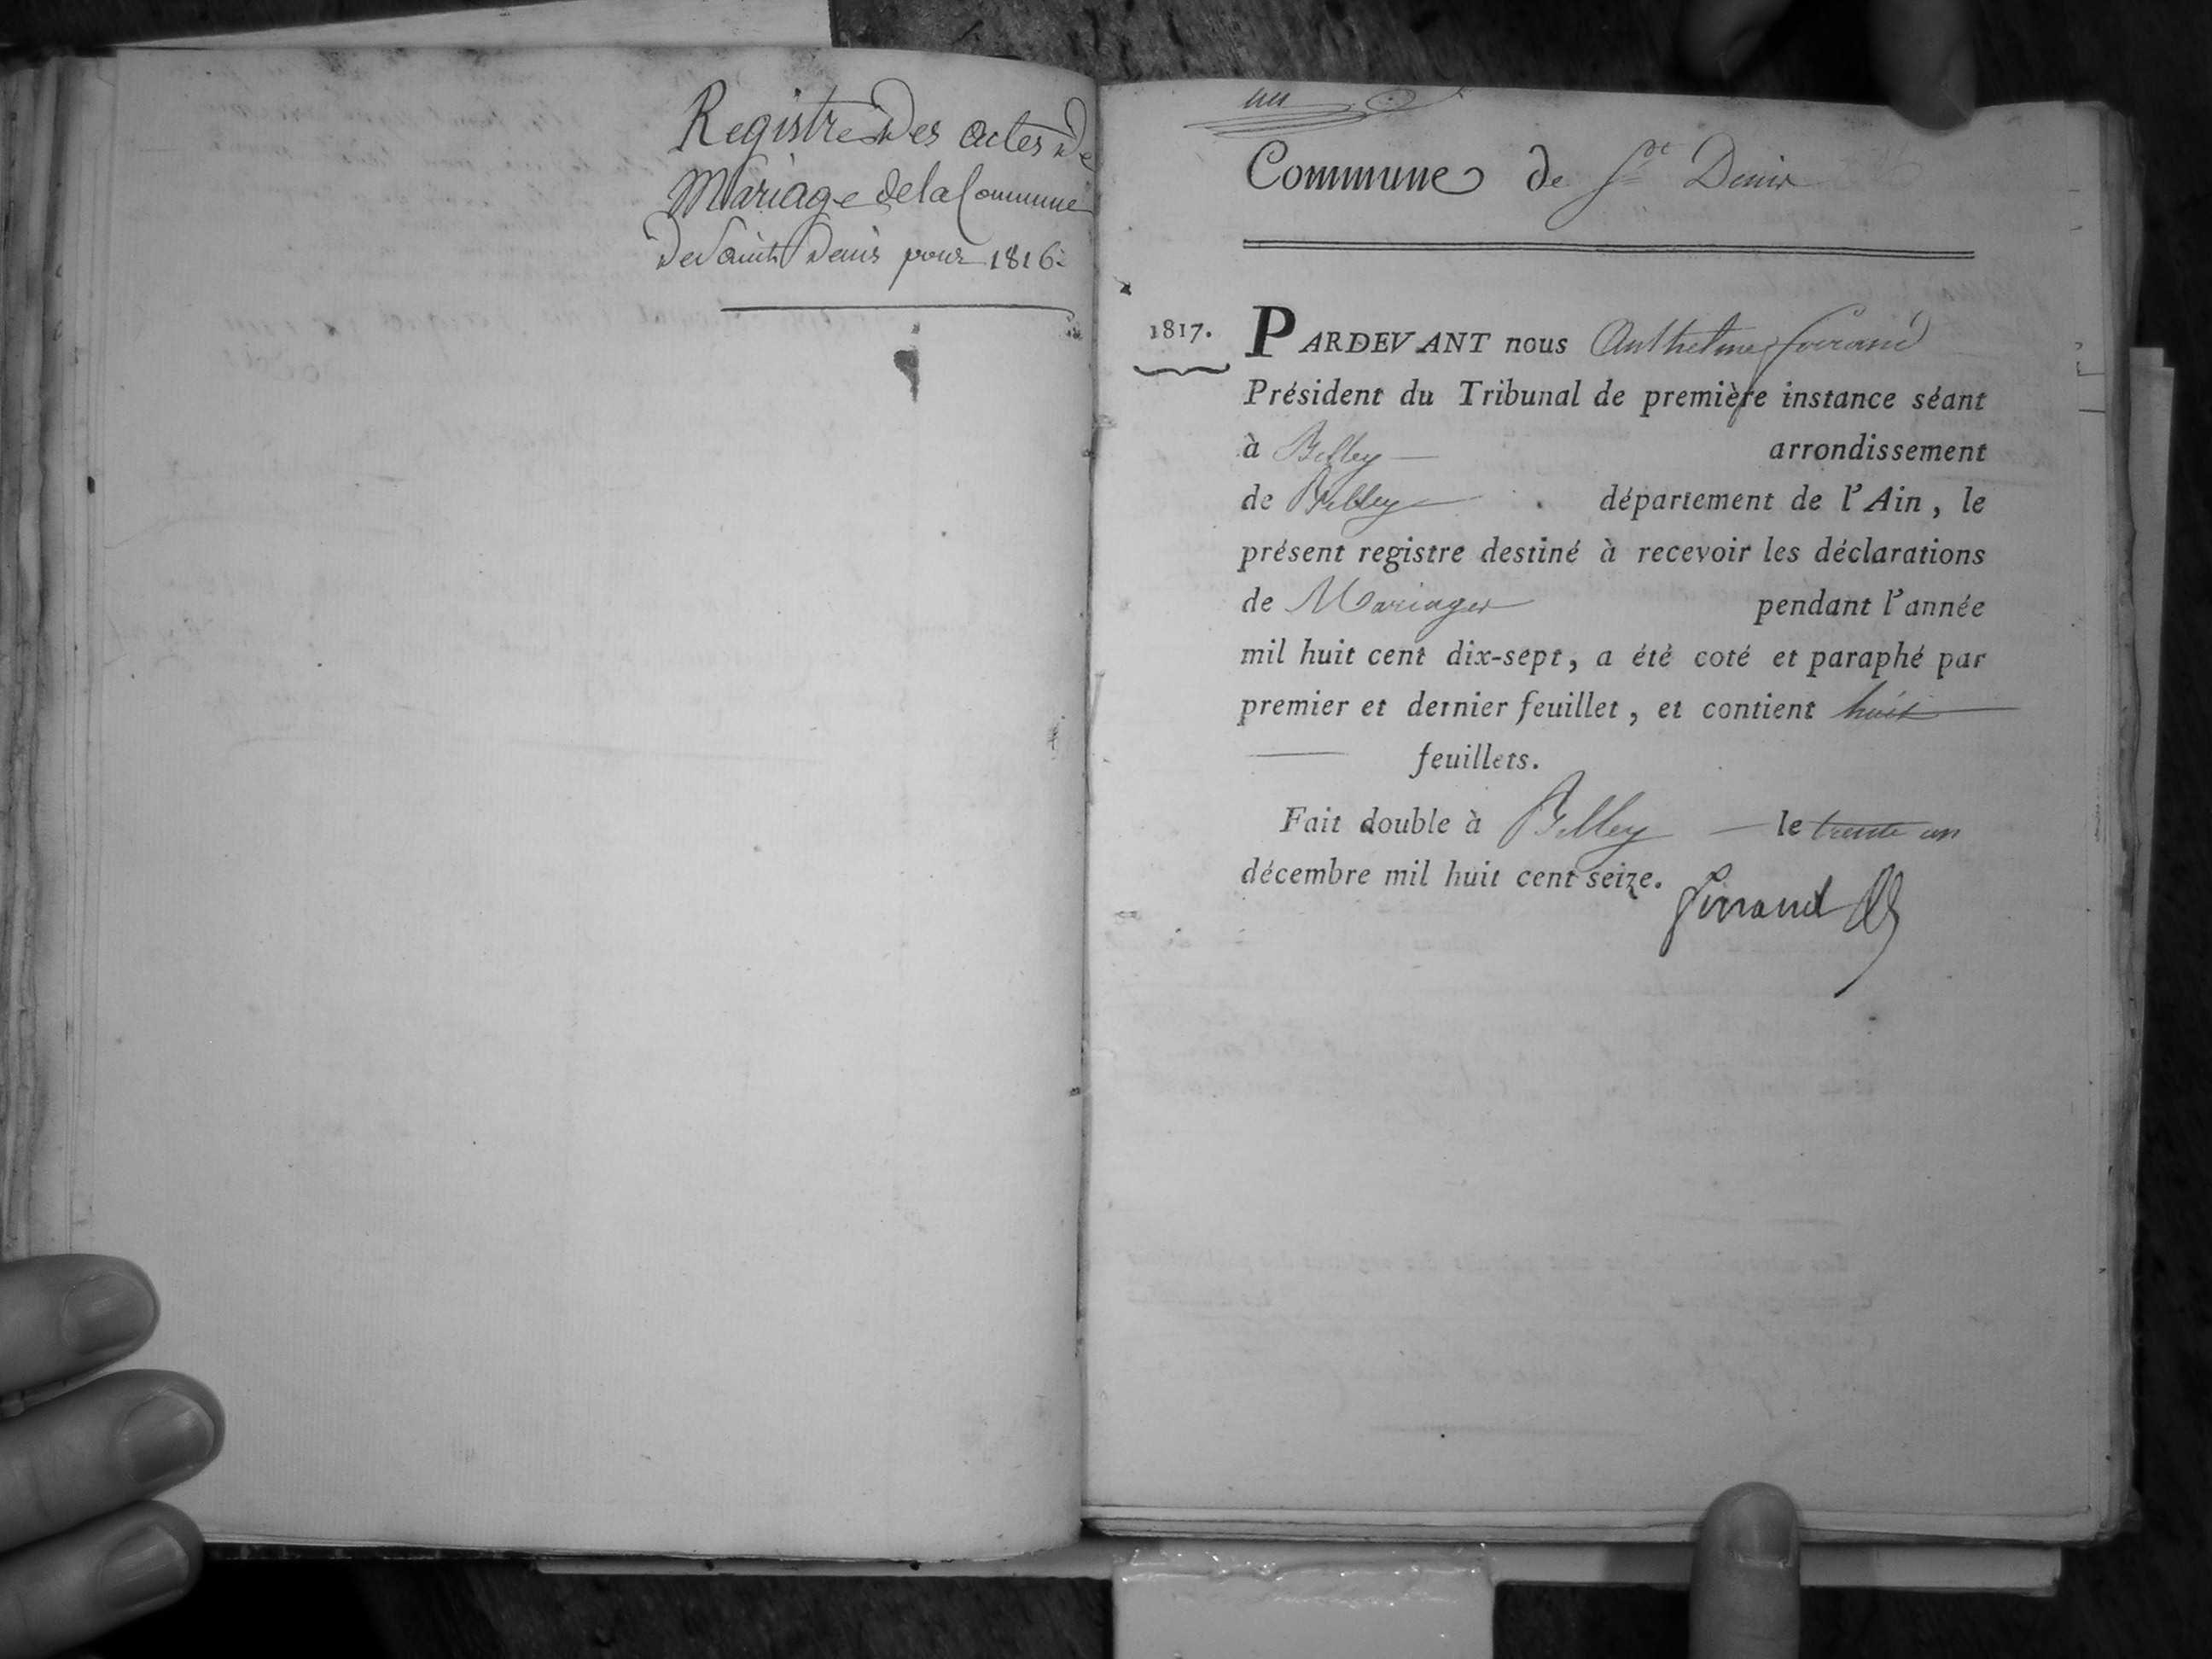 Registre des actes de
Mariage de la Commune
de Saint Denis pour 1816.
un
Commune de St Denis
1817. PARDEVANT nous Anthelme Ferrand
Président du Tribunal de première instance séant
à Belley arrondissement
de Belley département de l'Ain, le
présent registre destiné à recevoir les déclarations
de Mariages pendant l'année
mil huit cent dix-sept, a été coté et paraphé par
premier et dernier feuillet, et contient huit
feuillets.
Fait double à Belley le trente un
décembre mil huit cent seize.
Ferrand